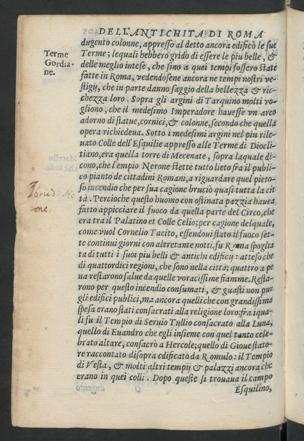 DELL'ANTICHITA DI ROMA
Terme
Gordia-
ne.
dugento colonne, appresso al detto ancora edificò le sue
Terme; lequali hebbero grido di essere le piu belle, &
delle meglio intese, che sino a quei tempi fossero state
fatte in Roma, vedendosene ancora ne tempi nostri ve-
stigij, che in parte danno saggio della bellezza & ric-
chezza loro. Sopra gli argini di Tarquino molti vo-
gliono, che il medesimo Imperadore hauesse vn arco
adorno di statue, cornici, & colonne, secondo che quella
opera richiedeua. Sotto i medesimi argini nel piu rile-
uato Colle dell'Esquilie appresso alle Terme di Diocli-
tiano, era quella torre di Mecenate, sopra laquale di-
cono, che l'empio Nerone stette tutto lieto fra il publi-
co pianto de cittadini Romani, a riguardare quel pieto-
so incendio che per sua cagione bruciò quasi tutta la cit
tà. Percioche questo huomo con ostinata pazzia haueua
fatto appicciare il fuoco da quella parte del Circo, che
era tra il Palatino et Colle Celio; per cagione del quale,
come vuol Cornelio Tacito, essendoui stato il fuoco set-
te continui giorni con altretante notti, fu Roma spoglia
ta di tutti i suoi piu belli & antichi edificij: atteso che
di quattordici regioni, che sono nella città; quattro a pe
na restarono salue da quelle voracissime fiamme. Resta-
rono per questo incendio consumati, & guasti non pur
gli edifici publici, ma ancora quelli che con grandissima
spesa erano stati consacrati alla religione loro: fra iqua-
li fu il Tempio di Seruio Tullio consacrato alla Luna,
quello di Euandro che egli insieme con quel tanto cele-
brato altare, consacrò a Hercole; quello di Gioue stato-
re raccontato disopra edificato da Romulo: il Tempio
di Vesta, & molti altri tempij & palazzi ancora che
erano in quei colli. Dopo queste si trouaua il campo
Esquilino,